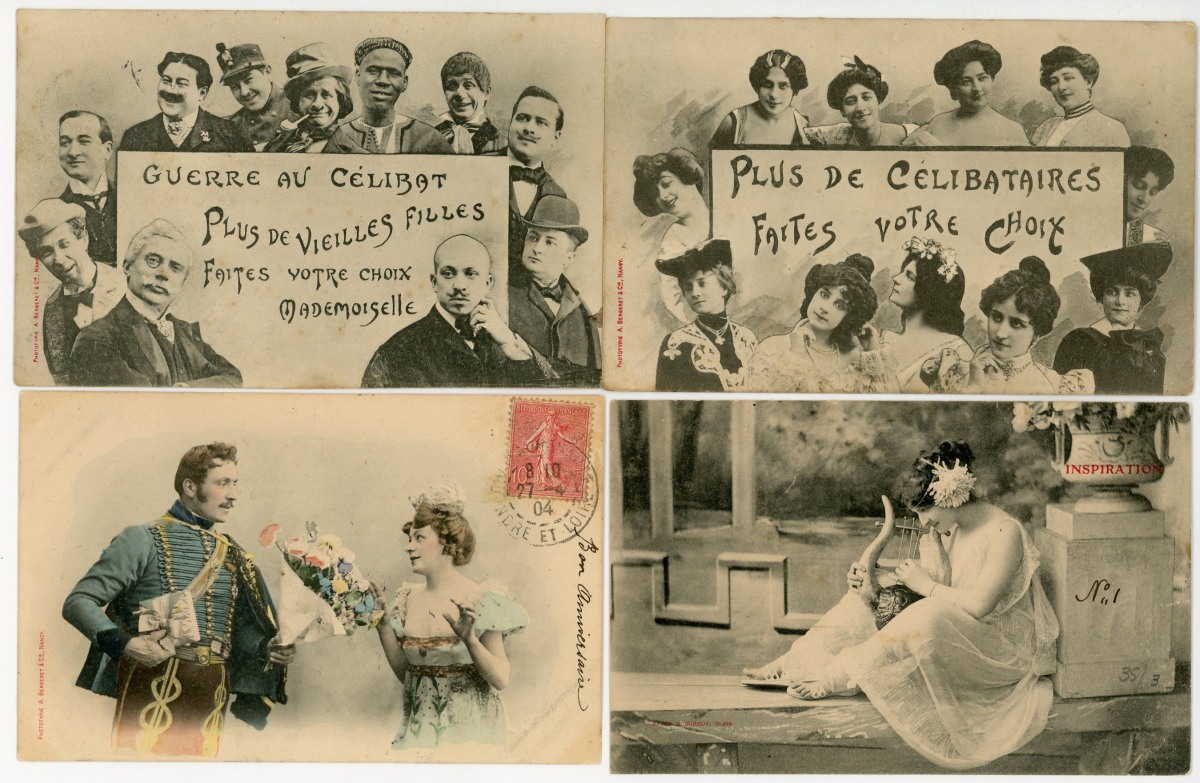 GUERRE AU CÉLIBAT
PLUS DE VIEILLES FILLES
FAITES VOTRE CHOIX
MADEMOISELLE
PHOTOTYPIE A. BERGERET & Cie, NANCY.
PLUS DE CÉLIBATAIRES
FAITES VOTRE CHOIX
PHOTOTYPIE A. BERGERET & Cie, NANCY.
8 10
27 -4
04
INDRE ET LOIRE
Bon Anniversaire
PHOTOTYPIE A. BERGERET & Cie, NANCY.
INSPIRATION
No. 1
35/3
DIJON